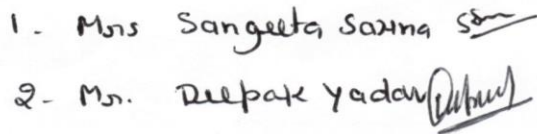 1. Mrs Sangeeta Saxena
2- Mr. Deepak Yadav